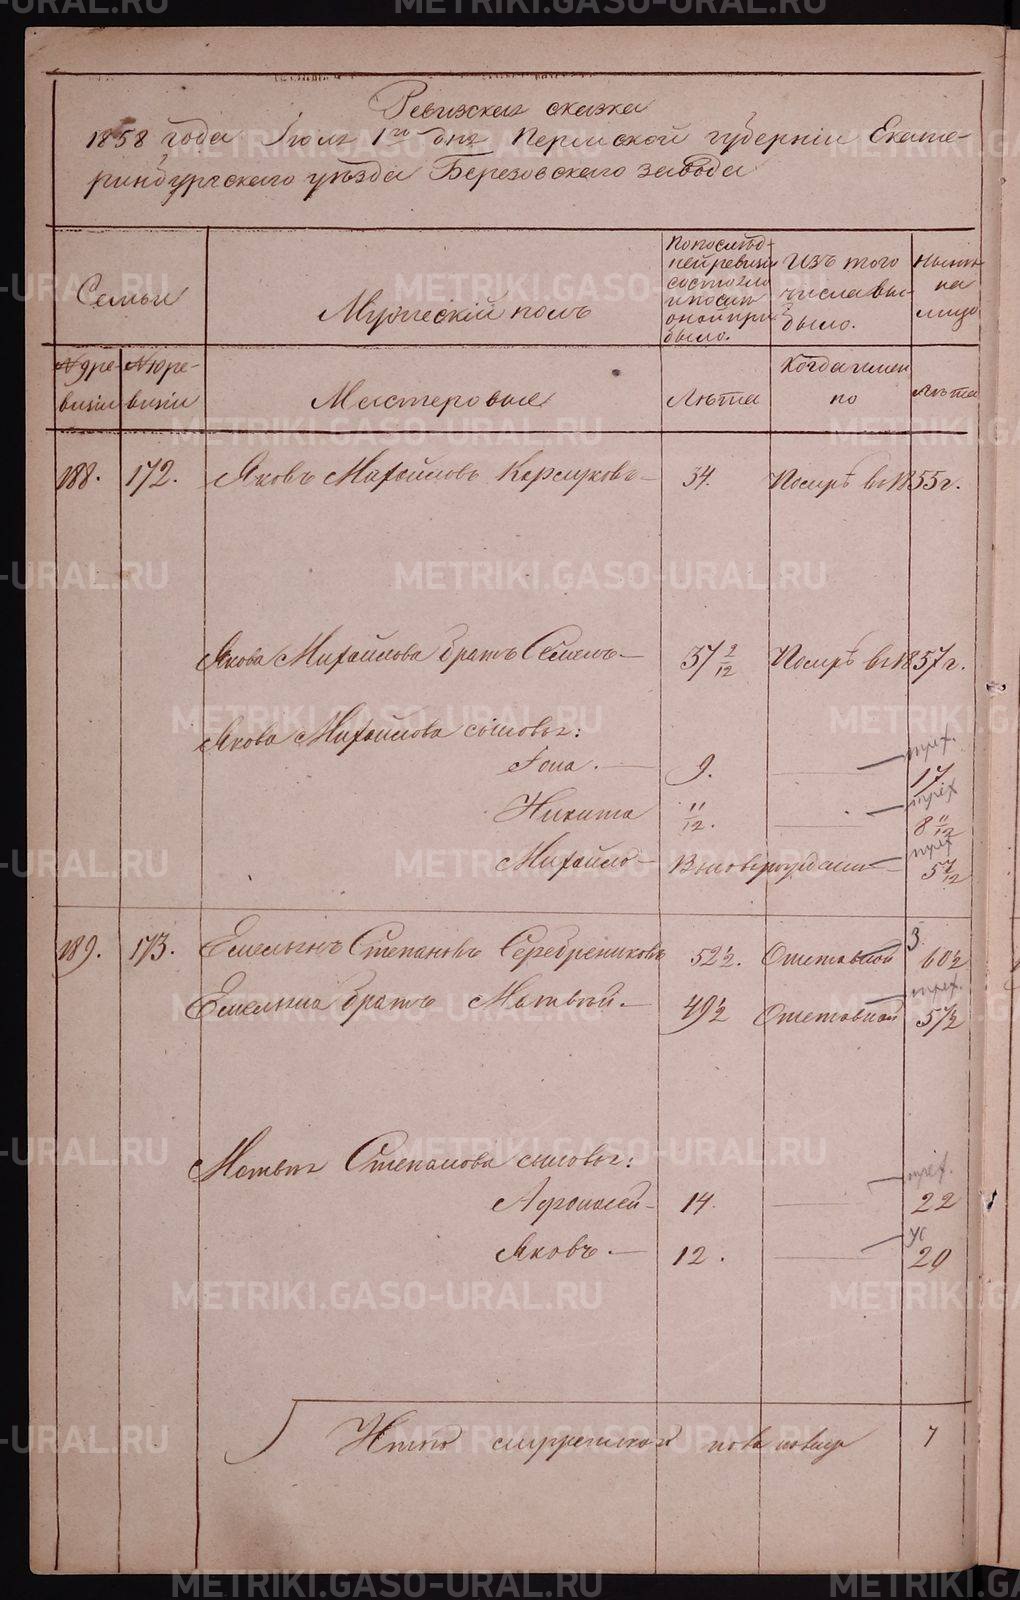 Ревизская сказка
1858 года Июля 1го дня Пермской губернiи Екате-
ринбургскаго уѣзда Березовскаго завода
Семьи
Мужескiй полъ
По послѣд-
ней ревизiи
состояло
и после
оной при
было.
Изъ того
числа вы-
было.
Нынѣ
на
лицо
№ 9 ре-
визiи
№ 10 ре-
визiи
Мастеровые
Лѣта
Когда имен
но
Лѣта
188. 172. Яковъ Михайловъ 34. Помръ въ 1855 г.
Якова Михайлова братъ Семенъ 37 2/12 Помръ въ 1857 г.
Якова Михайлова сыновья:
Фома. 9. 17
Никита 11/12. 8 11/12
Михайло Вновьрожденъ 5 7/12
189. 173. Емельянъ Степановъ Серебрениковъ 52½. Отставной 60½
Емельяна братъ Матвѣй. 49½ Отставной 57½
Матвѣя Степанова сыновья:
Афонасей 14. 22
Яковъ. 12. 20
Итого мужескаго пола на лицо 7
METRIKI.GASO-URAL.RU